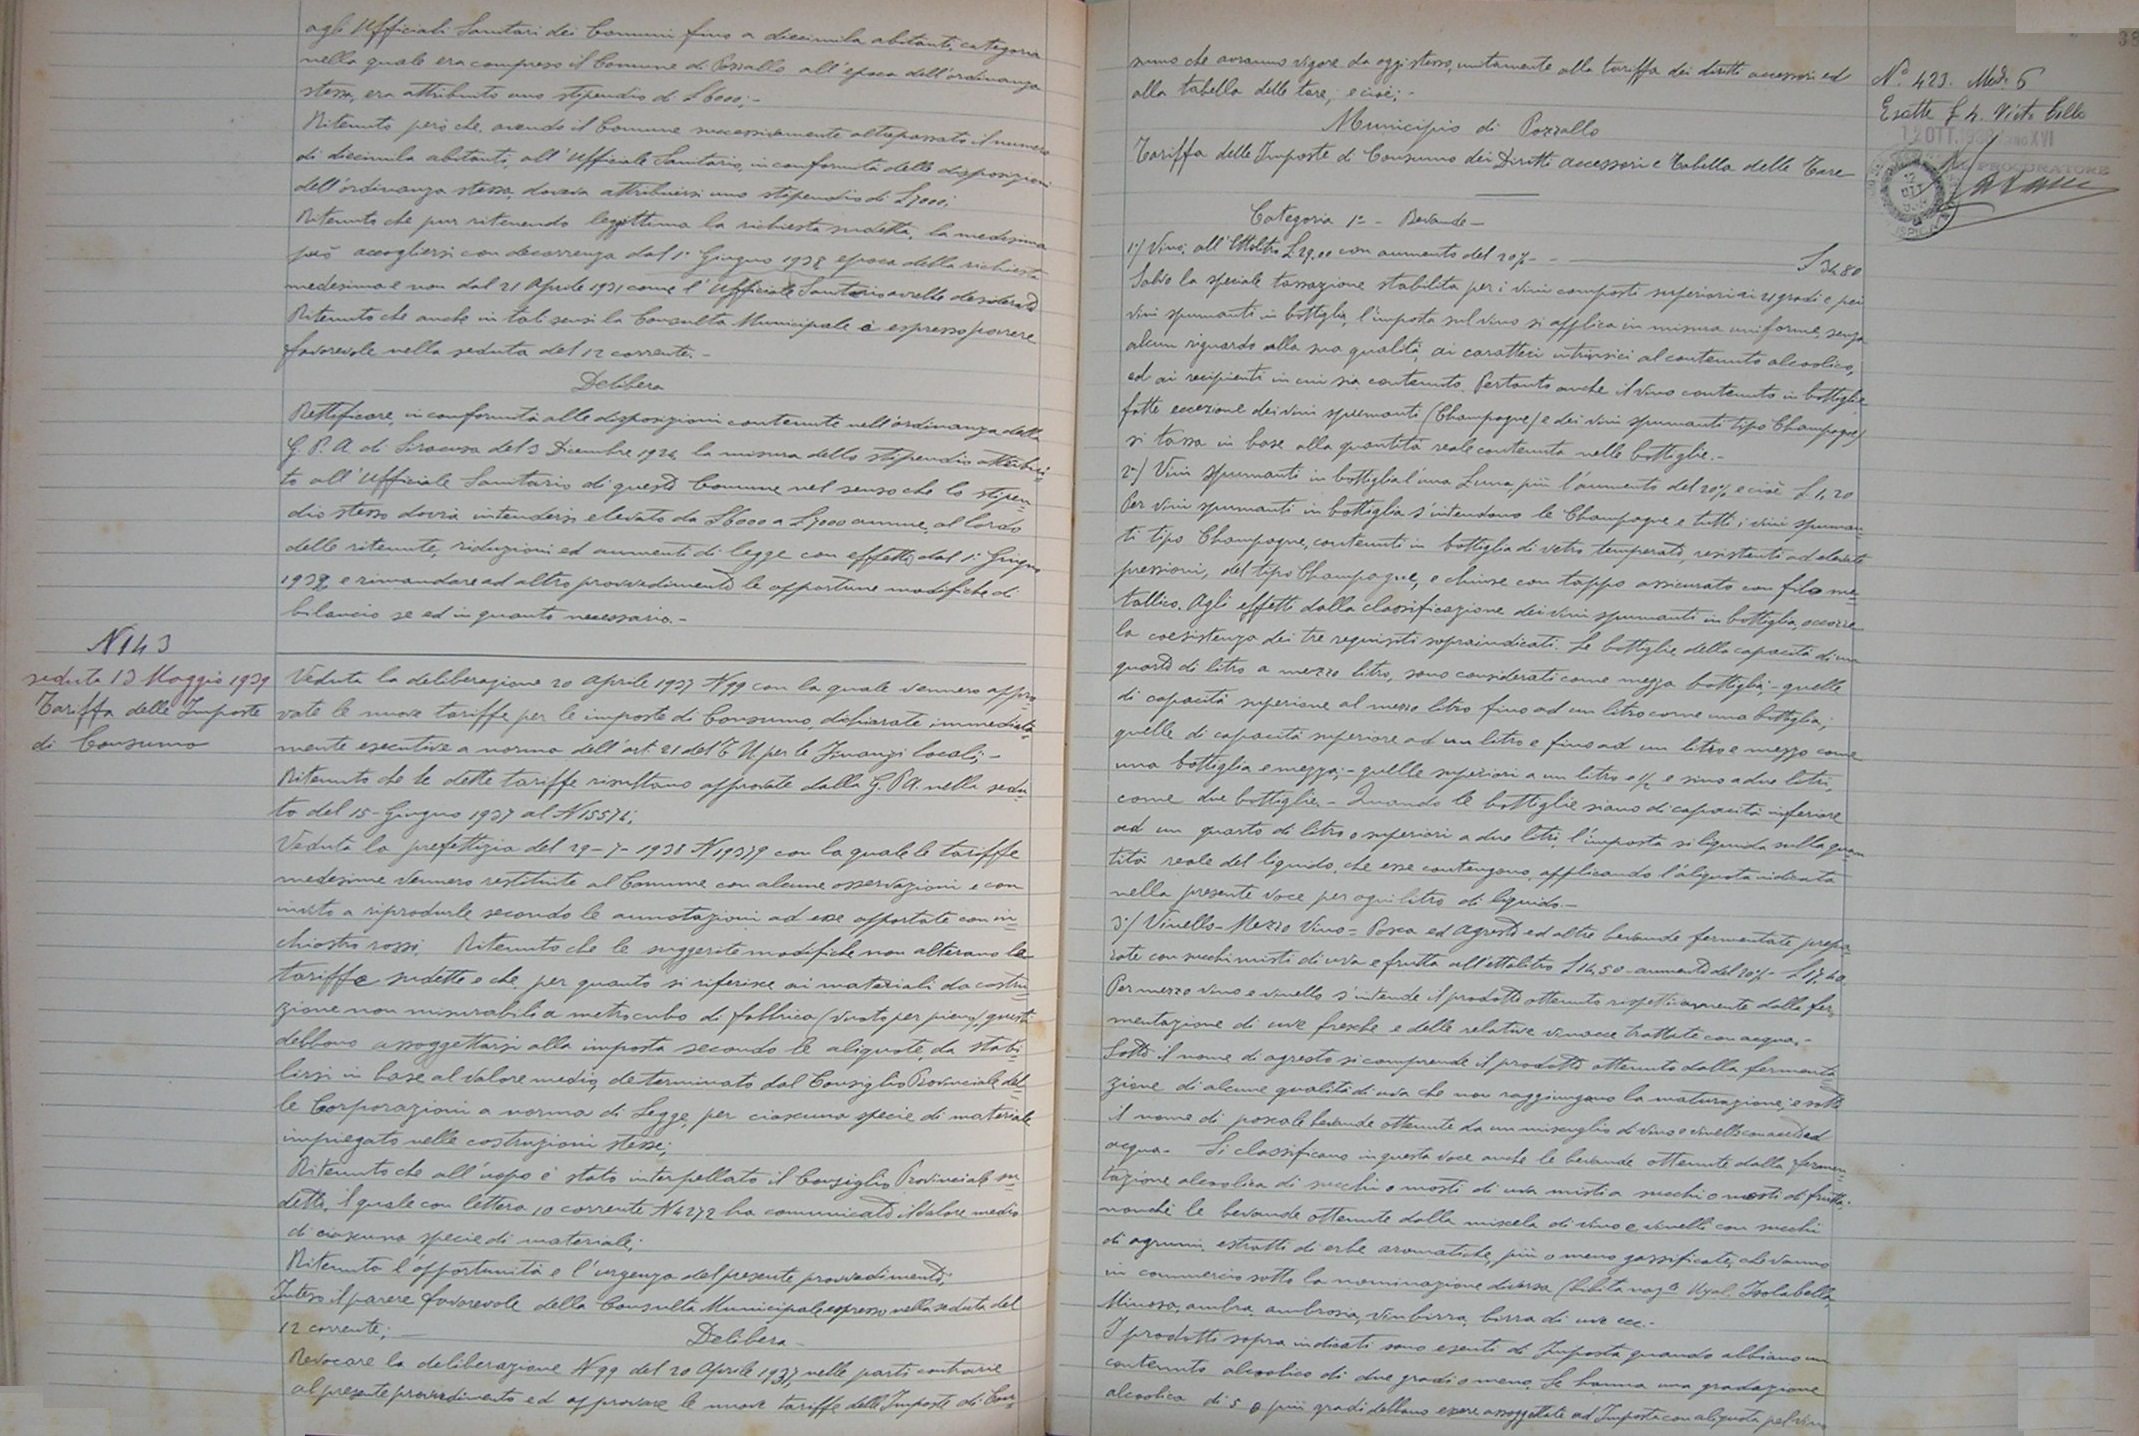 agli Ufficiali Sanitari dei Comuni fino a diecimila abitanti, categoria
nella quale era compreso il Comune di Pozzallo all'epoca dell'ordinanza
stessa, era attribuito uno stipendio di £ 6000;-
Ritenuto però che, avendo il Comune successivamente oltrepassato il numero
di diecimila abitanti all'Ufficiale Sanitario, in conformità delle disposizioni
dell'ordinanza stessa, doveva attribuirsi uno stipendio di £ 7000;
Ritenuto che pur ritenendo legittima la richiesta sudetta, la medesima
può accogliersi con decorrenza dal 1° Giugno 1939 epoca della richiesta
medesima e non dal 21 Aprile 1931 come l'Ufficiale Sanitario avrebbe desiderato
Ritenuto che anche in tali sensi la Consulta Municipale à espresso parere
favorevole nella seduta del 12 corrente.-
Delibera
Rettificare, in conformità alle disposizioni contenute nell'ordinanza della
G. P. A. di Siracusa del 3 Dicembre 1926 la misura dello stipendio attribui=
to all'Ufficiale Sanitario di questo Comune nel senso che lo stipen=
dio stesso dovrà intendersi elevato da £6000 a £7000 annue, al lordo
delle ritenute, riduzioni ed aumenti di legge con effetto dal 1° Giugno
1939 e rimandare ad altro provvedimento le opportune modifiche di
bilancio se ed in quanto necessario.-
N 143
seduta 13 Maggio 1939
Tariffa delle Imposte
di Consumo
Veduta la deliberazione 20 Aprile 1937 N 99 con la quale vennero appro=
vate le nuove tariffe per le imposte di Consumo, dichiarate immediata=
mente esecutive a norma dell'art. 21 del T U per le Finanze locali;-
Ritenuto che le dette tariffe risultano approvate dalla G. P A. nella sedu=
ta del 15-Giugno 1937 al N 15574;
Veduta la prefettizia del 29-7-1938 N 19379 con la quale le tariffe
medesime vennero restituite al Comune con alcune osservazioni e con
invito a riprodurle secondo le annotazioni ad esse apportate con in=
chiostro rosso. Ritenuto che le suggerite modifiche non alterano le
tariffe sudette e che, per quanto si riferisce ai materiali da costru=
zione non misurabili a metro cubo di fabbrica (vuoto per pieno) questi
debbono assoggettarsi alla imposta secondo le aliquote da stabi=
lirsi in base al valore medio, determinato dal Consiglio Provinciale del=
le Corporazioni a norma di Legge, per ciascuna specie di materiale
impiegato nelle costruzioni stesse;
Ritenuto che all'uopo è stato interpellato il Consiglio Provinciale su=
detto, il quale con lettera 10 corrente N 4272 ha comunicato il valore medio
di ciascuna specie di materiale;
Ritenuta l'opportunità e l'urgenza del presente provvedimento;
Inteso il parere favorevole della Consulta Municipale espresso nella seduta del
12 corrente;-
Delibera
Revocare la deliberazione N 99 del 20 Aprile 1937 nelle parti contrarie
al presente provvedimento ed approvare le nuove tariffe delle Imposte di Con=
38
sumo che avranno vigore da oggi stesso, unitamente alla tariffa dei diritti accessori ed
alla tabella delle tare, e cioè;-
Municipio di Pozzallo
Tariffa delle Imposte di Consumo dei Diritti accessori e Tabella delle Tare
N° 423. Mod. 6
Esatte £ 4. Visto Bollo
12 OTT. 1938 Anno XVI
PROCURATORE
Categoria 1ª - Bevande-
1°/ Vino; all'Ettolitro £29,00 con aumento del 20%- £ 34,80
Salvo la speciale tassazione stabilita per i vini composti superiori ai 21 gradi e pei
vini spumanti in bottiglia, l'imposta sul vino si applica in misura uniforme, senza
alcun riguardo alla sua qualità, ai caratteri intrinsici al contenuto alcoolico,
ed ai recipienti in cui sia contenuto. Pertanto anche il vino contenuto in bottiglie
fatte eccezione dei vini spumanti (Champagne) e dei vini spumanti tipo Champagne)
si tassa in base alla quantità reale contenuta nelle bottiglie.-
2°/ Vini spumanti in bottiglia l'una £ una, più l'aumento del 20% e cioè £ 1,20
Per vini spumanti in bottiglia s'intendono le Champagne e tutti i vini spuman=
ti tipo Champagne, contenuti in bottiglia di vetro temperato, resistenti ad elevate
pressioni, del tipo Champagne, e chiuse con tappo assicurato con filo me=
tallico. Agli effetti dalla classificazione dei vini spumanti in bottiglia, occorre
la coesistenza dei tre requisiti sopraindicati. Le bottiglie della capacità di un
quarto di litro a mezzo litro, sono considerati come mezza bottiglia;- quelle
di capacità superiore al mezzo litro fino ad un litro come una bottiglia;
quelle di capacità superiore ad un litro e fino ad un litro e mezzo come
una bottiglia e mezza;- quelle superiori a un litro e ½ e sino a due litri,
come due bottiglie.- Quando le bottiglie siano di capacità inferiore
ad un quarto di litro o superiori a due litri, l'imposta si liquida sulla quan=
tità reale del liquido, che esse contengono, applicando l'aliquota indicata
nella presente voce per ogni litro di liquido.-
3°/ Vinello-Mezzo Vino= Posca ed Agresto ed altre bevande fermentate prepa=
rate con succhi misti di uva e frutta all'ettolitro £ 14,50 -aumento del 20%- £ 17,40
Per mezzo vino e vinello s'intende il prodotto ottenuto rispettivamente dalla fer=
mentazione di uve fresche e delle relative vinacce trattate con acqua.-
Sotto il nome di agresto si comprende il prodotto ottenuto dalla fermenta=
zione di alcune qualità di uva che non raggiungono la maturazione; e sotto
il nome di posca le bevande ottenute da un miscuglio di vino o vinello con aceto ed
acqua.- Si classificano in questa voce anche le bevande ottenute dalla fermen=
tazione alcoolica di succhi o mosti di uva misti a succhi o mosti di frutta,
nonché le bevande ottenute dalla miscela di vino e vinelli con succhi
di agrumi, estratti di erbe aromatiche, più o meno gassificate, che vanno
in commercio sotto la nominazione diversa (bibita Uyal, Isolabella,
Mimosa, ambra, ambrosia, vin birra, birra di uve ecc.-
I prodotti sopra indicati sono esenti da Imposta quando abbiano un
contenuto alcoolico di due gradi o meno. Se hanno una gradazione
alcoolica di 5 o più gradi debbono essere assoggettate ad Imposta con aliquota pel vino